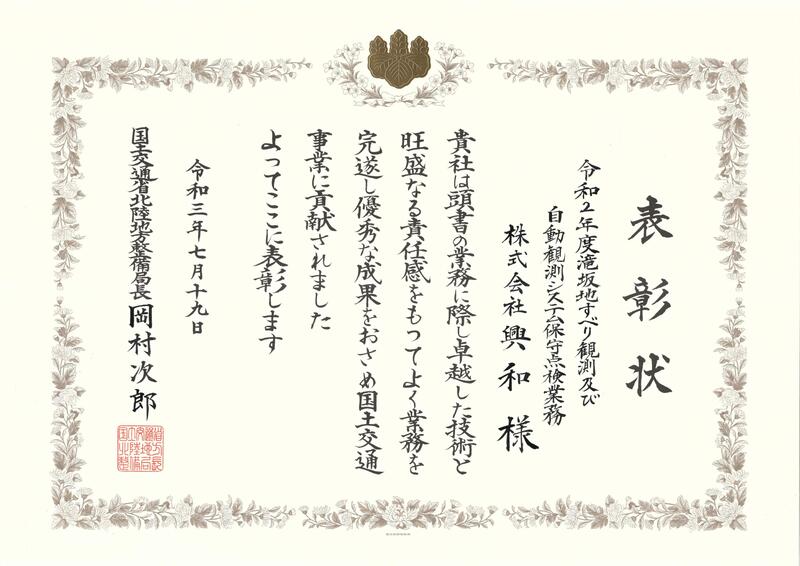 表彰状
令和２年度滝坂地すべり観測及び
自動観測システム保守点検業務
株式会社興和様
貴社は頭書の業務に際し卓越した技術と
旺盛なる責任感をもつてよく業務を
完遂し優秀な成果をおさめ国土交通
事業に貢献されました
よってここに表彰します
令和三年七月十九日
国土交通省北陸地方整備局長 岡村次郎